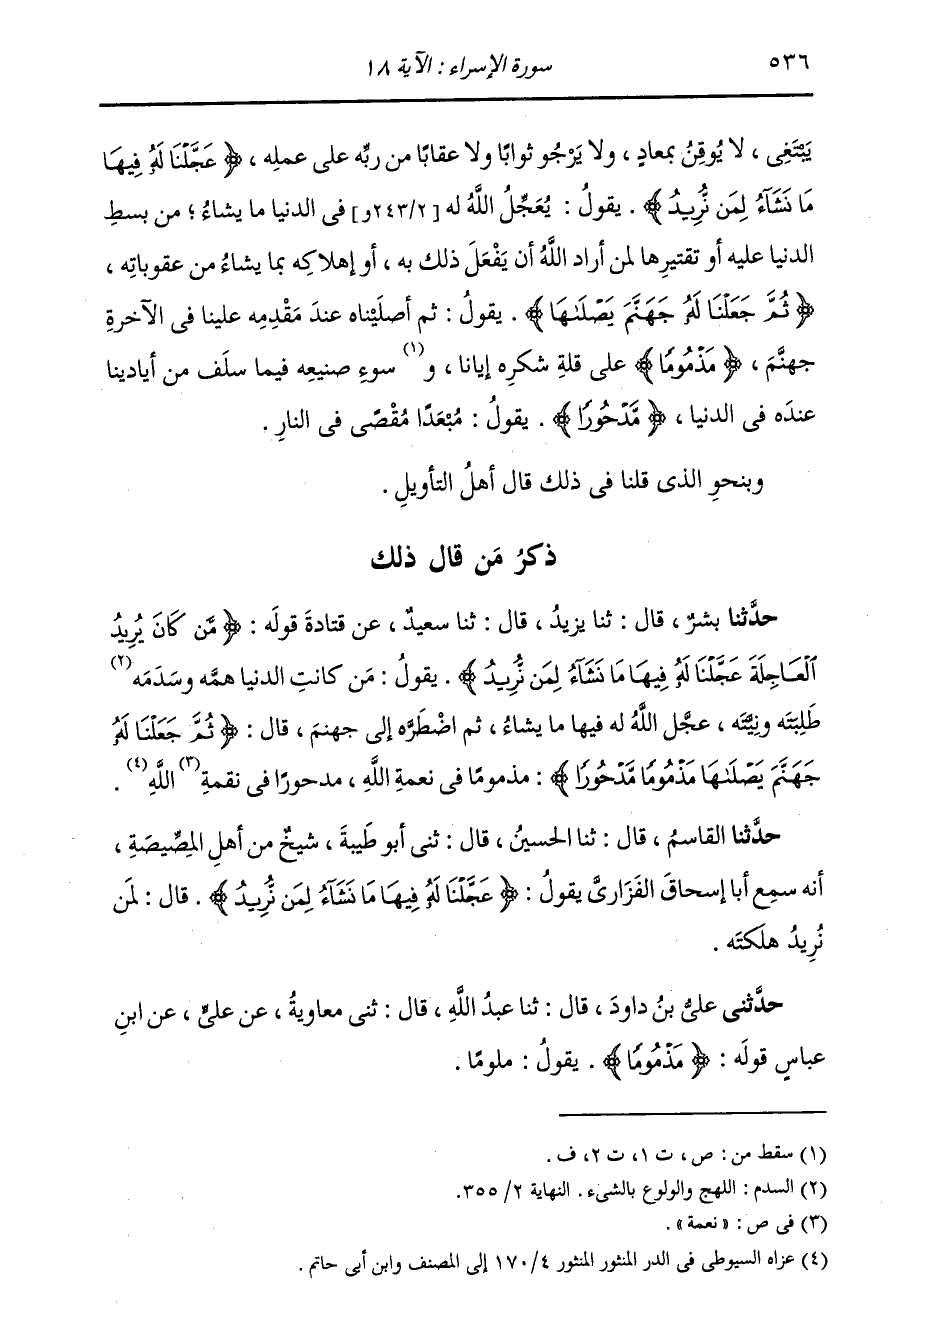 ٥٣٦
سورة الإسراء : الآية ١٨
يَبْتَغِى ، لا يُوقِنُ بمعادٍ ، ولا يَرْجُو ثوابًا ولا عقابًا من ربِّه على عملِه ، ﴿ عَجَّلْنَا لَهُۥ فِيهَا
مَا نَشَآءُ لِمَن نُّرِيدُ ﴾ . يقولُ : يُعَجِّلُ اللَّهُ له [٢/٢٤٣و] فى الدنيا ما يشاءُ ؛ من بسطِ
الدنيا عليه أو تقتيرِها لمن أراد اللَّهُ أن يَفْعَلَ ذلك به ، أو إهلاكِه بما يشاءُ من عقوباتِه ،
﴿ ثُمَّ جَعَلْنَا لَهُۥ جَهَنَّمَ يَصْلَىٰهَا ﴾ . يقولُ : ثم أصلَيْناه عندَ مَقْدِمِه علينا فى الآخرةِ
جهنَّمَ ، ﴿ مَذْمُومًا ﴾ على قلةِ شكرِه إيانا ، و(١) سوءِ صنيعِه فيما سلَف من أيادينا
عندَه فى الدنيا ، ﴿ مَّدْحُورًا ﴾ . يقولُ : مُبْعَدًا مُقْصًى فى النارِ .
وبنحوِ الذى قلنا فى ذلك قال أهلُ التأويلِ .
ذكرُ مَن قال ذلك
حدَّثنا بشرٌ ، قال : ثنا يزيدُ ، قال : ثنا سعيدٌ ، عن قتادةَ قولَه : ﴿ مَّن كَانَ يُرِيدُ
ٱلْعَاجِلَةَ عَجَّلْنَا لَهُۥ فِيهَا مَا نَشَآءُ لِمَن نُّرِيدُ ﴾ . يقولُ : مَن كانتِ الدنيا همَّه وسَدَمَه(٢)
طَلِبَتَه ونِيَّتَه ، عجَّل اللَّهُ له فيها ما يشاءُ ، ثم اضْطَرَّه إلى جهنمَ ، قال : ﴿ ثُمَّ جَعَلْنَا لَهُۥ
جَهَنَّمَ يَصْلَىٰهَا مَذْمُومًا مَّدْحُورًا ﴾ : مذمومًا فى نعمةِ اللَّهِ ، مدحورًا فى نقمةِ(٣) اللَّهِ(٤) .
حدَّثنا القاسمُ ، قال : ثنا الحسينُ ، قال : ثنى أبو طَيبةَ ، شيخٌ من أهلِ المِصِّيصَةِ ،
أنه سمِع أبا إسحاقَ الفَزَارىَّ يقولُ : ﴿ عَجَّلْنَا لَهُۥ فِيهَا مَا نَشَآءُ لِمَن نُّرِيدُ ﴾ . قال : لمَن
نُرِيدُ هلَكتَه .
حدَّثنى علىُّ بنُ داودَ ، قال : ثنا عبدُ اللَّهِ ، قال : ثنى معاويةُ ، عن علىٍّ ، عن ابنِ
عباسٍ قولَه : ﴿ مَذْمُومًا ﴾ . يقولُ : ملومًا .
(١) سقط من : ص ، ت ١، ت ٢، ف .
(٢) السدم : اللهج والولوع بالشىء . النهاية ٢/ ٣٥٥.
(٣) فى ص : « نعمة » .
(٤) عزاه السيوطى فى الدر المنثور المنثور ٤/ ١٧٠ إلى المصنف وابن أبى حاتم .